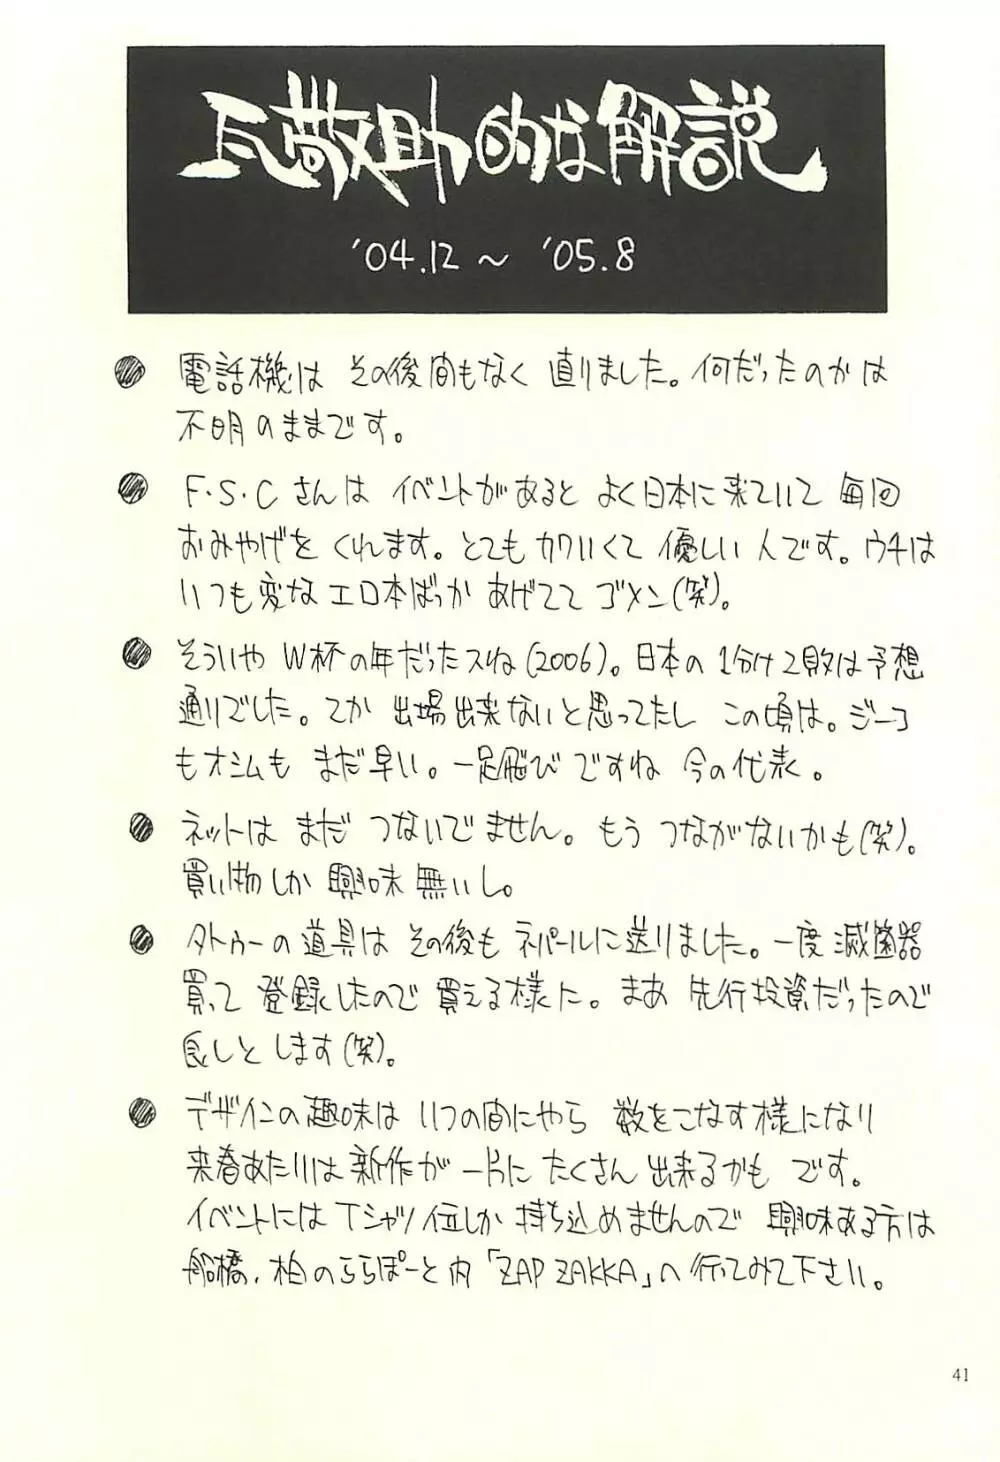 瓦敬助的な解説
'04.12 ～ '05.8
● 電話機は その後間もなく 直りました。何だったのかは
不明のままです。
● F・S・Cさんは イベントがあると よく日本に来ていて 毎回
おみやげを くれます。とても カワいくて 優しい人です。ウチは
いつも変なエロ本ばっか あげてて ゴメン(笑)。
● そういや W杯の年だったスね(2006)。日本の1分け2敗は予想
通りでした。てか 出場出来ないと思ってたし この頃は。ジーコ
もオシムも まだ早い。一足飛び ですね 今の代表。
● ネットは まだ つないでません。もう つながないかも(笑)。
買い物しか 興味 無いし。
● タトゥーの道具は その後も ネパールに送りました。一度 滅菌器
買って 登録したので 買える様に。まあ 先行投資だったので
良しとします(笑)。
● デザインの趣味は いつの間にやら 数をこなす様になり
来春あたりは新作が 一片に たくさん 出来るかも です。
イベントには Tシャツ位しか 持ち込めませんので 興味ある方は
船橋、柏のららぽーと内「ZAP ZAKKA」へ 行ってみて下さい。
41